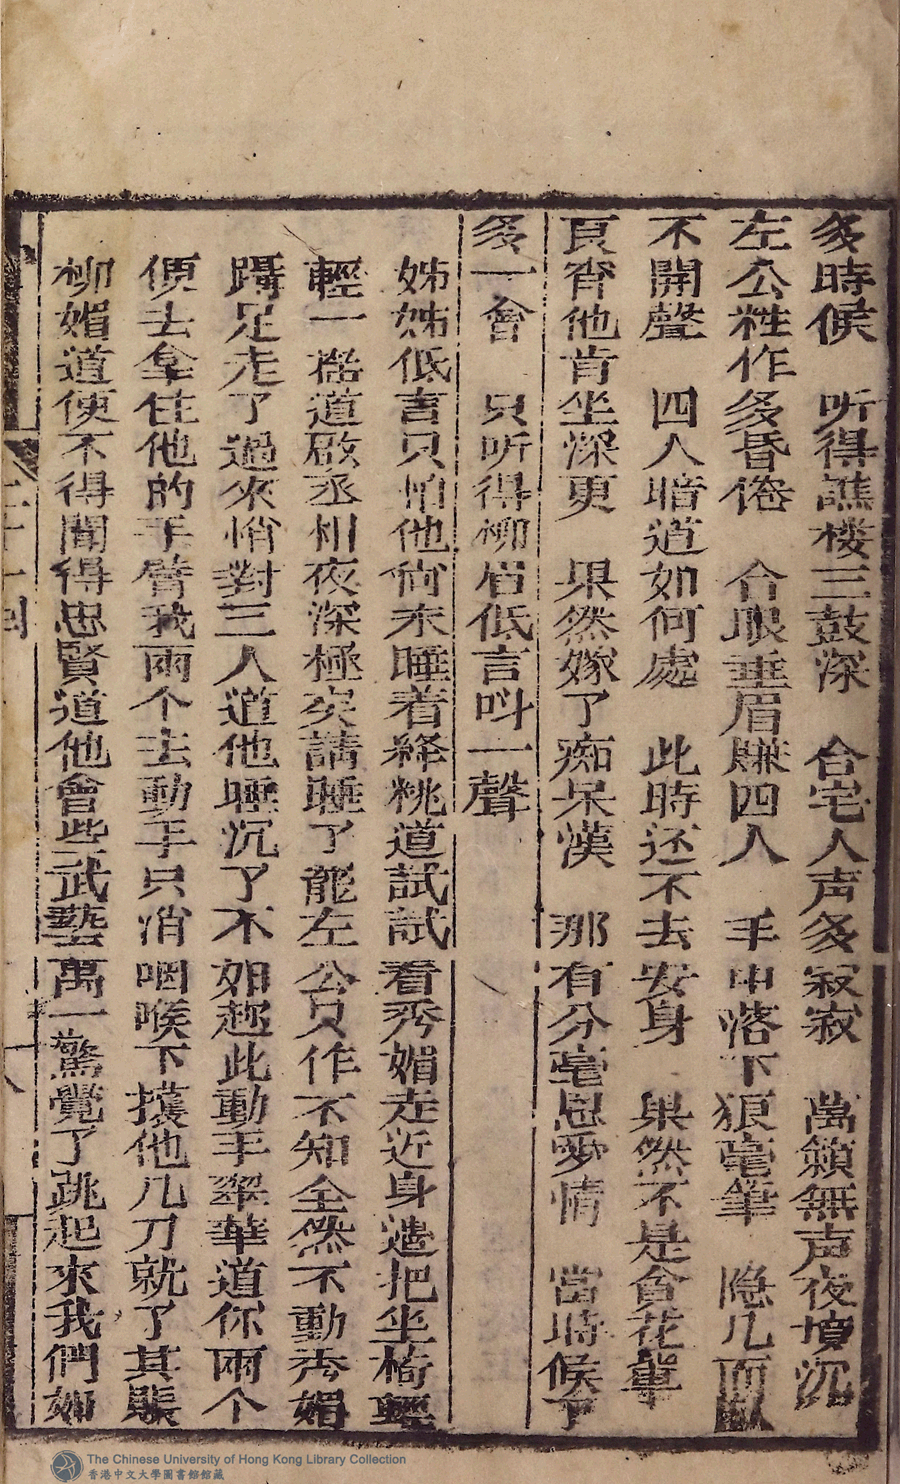 多時候　听得譙楼三鼓深　合宅人声多寂寂　萬籟無声夜墳沉
左公粧作多昏倦　合眼垂眉賺四人　手中落下狼毫筆　隐几而臥
不開聲　四人暗道如何處　此時还不去安身　果然不是貪花輩
頁齊他肯坐深更　果然嫁了痴呆漢　那有分毫恩愛情　當時候了
多一會　只听得柳眉低言呌一聲
姊姊低言只怕他尙未睡着絳桃道試試看秀媚走近身邉把坐椅輕
輕一搖道啟丞相夜深極矣請睡了龍左公只作不知全然不動秀媚
躡足走了過來悄對三人道他睡沉了不如趂此動手翠華道你兩个
便去拿住他的手臂我兩个去動手只消咽喉下攮他几刀就了其賬
柳媚道使不得聞得忠賢道他會些武藝萬一驚覺了跳起來我們如
二十一回
十八
The Chinese University of Hong Kong Library Collection
香港中文大學圖書館館藏